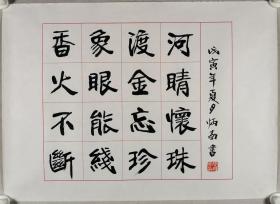 河晴懷珠
渡金忘珍
象眼能綫
香火不斷
戊寅年夏月炳南書